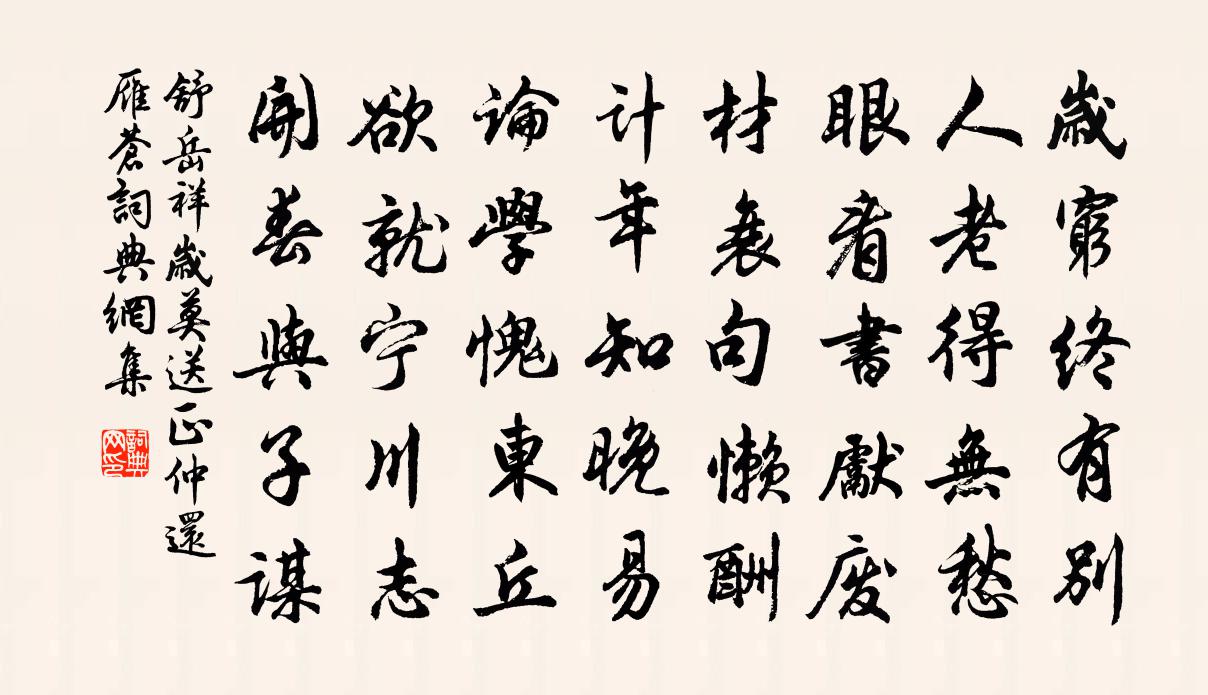 歲窮終有別
人老得無愁
眼看書厭废
材衰句懶酬
计年知晚易
論學愧東丘
欲就宁川志
開春與子謀
舒岳祥歲莫送正仲還
雁蒼詞典網集
詞典网印